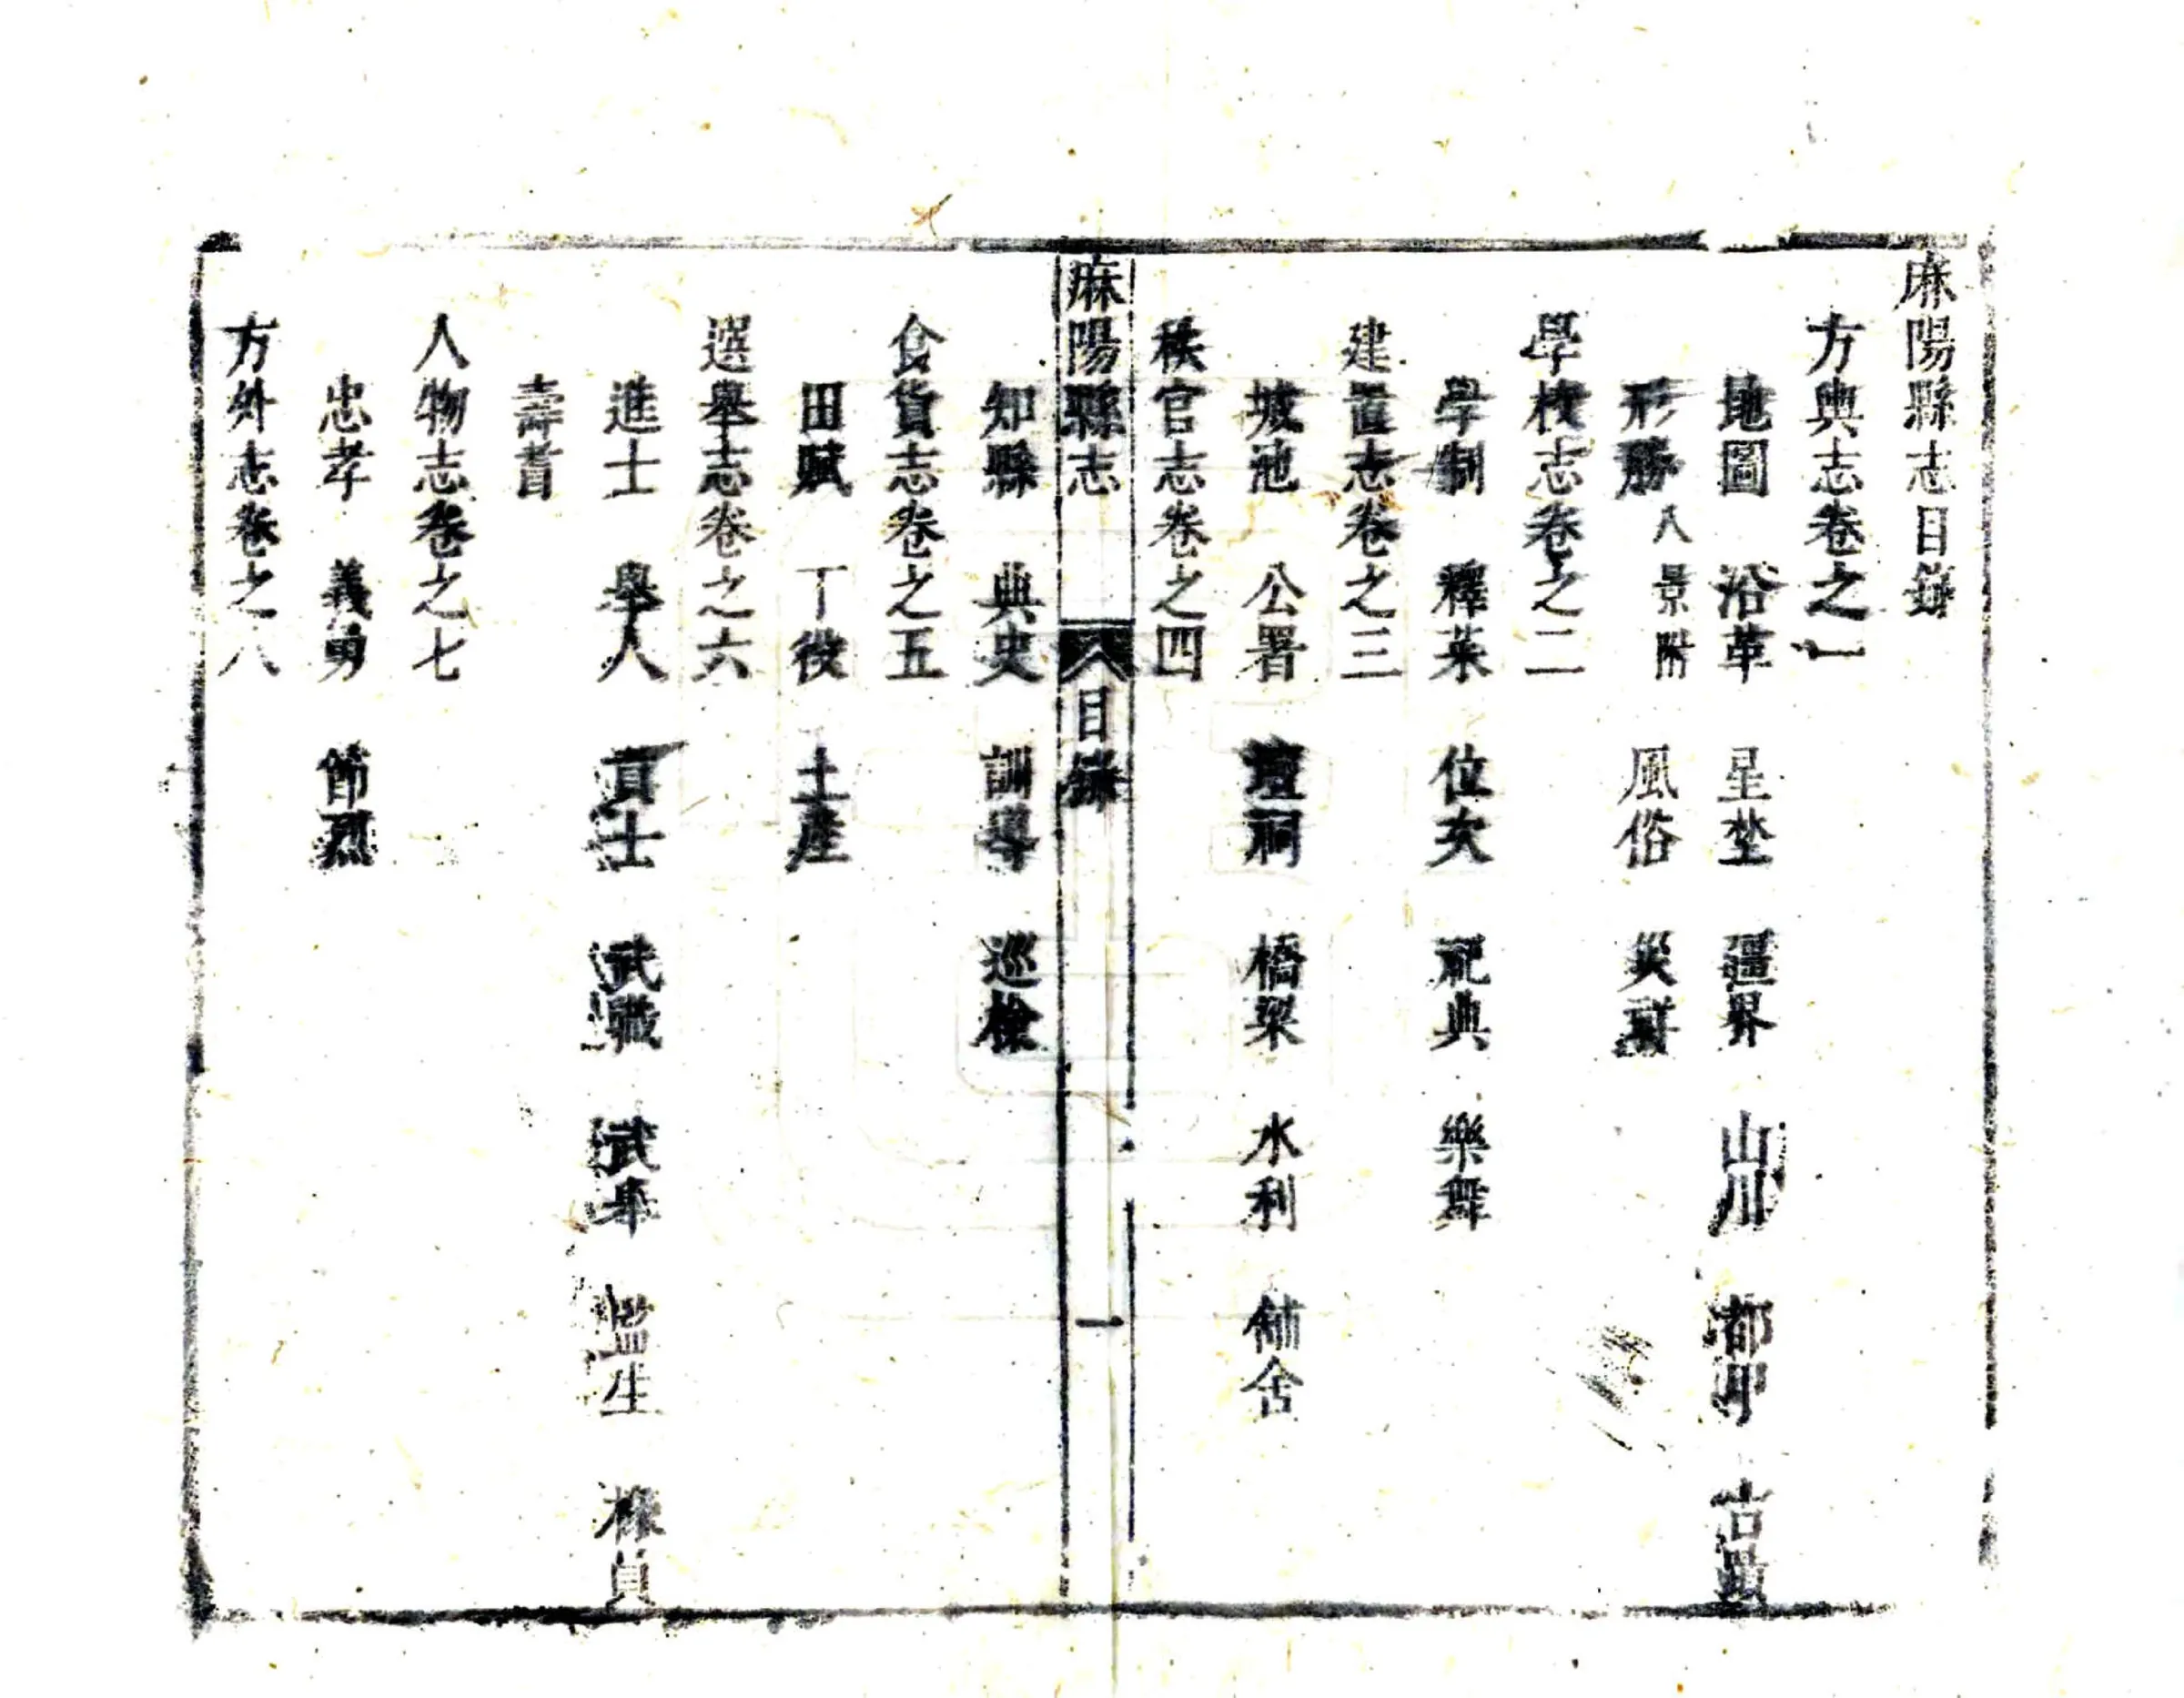 麻陽縣志目錄
方輿志卷之一
地圖 沿革 星埜 疆界 山川 都甲 古蹟
形勝 八景附 風俗 災祥
學校志卷之二
學制 釋菜 位次 祀典 樂舞
建置志卷之三
城池 公署 壇祠 橋梁 水利 舖舍
秩官志卷之四
麻陽縣志 目錄 一
知縣 典史 訓導 巡檢
食貨志卷之五
田賦 丁役 土產
選舉志卷之六
進士 舉人 貢士 武職 武舉 監生 掾員
壽耆
人物志卷之七
忠孝 義勇 節烈
方外志卷之八